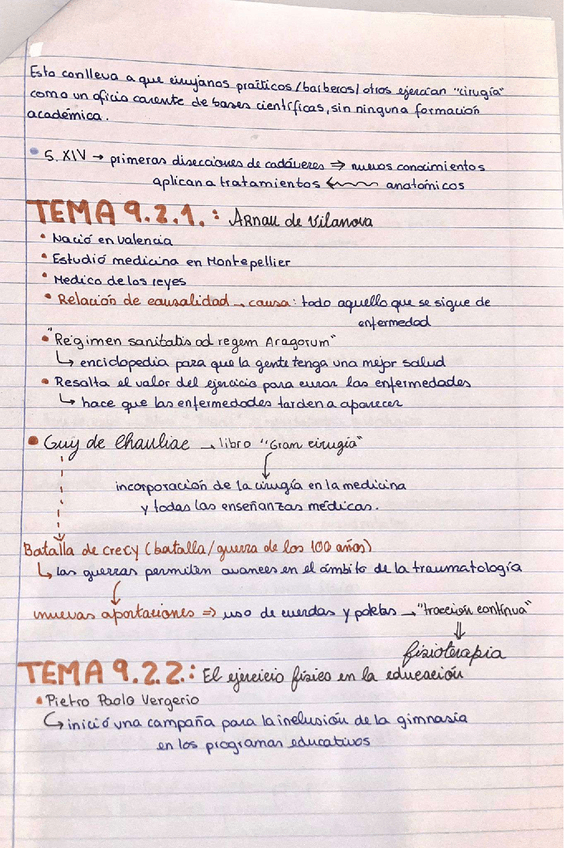 Esto conlleva a que cirujanos práticos/barberos/otros ejercían "cirugía"
como un oficio carente de bases científicas, sin ninguna formación
académica.
• S. XIV → primeras disecciones de cadáveres ⇒ nuevos conocimientos
aplican a tratamientos ← anatómicos
TEMA 9.2.1.: Arnau de Vilanova
• Nació en Valencia
• Estudió medicina en Montepellier
• Medico de los reyes
• Relación de causalidad → causa: todo aquello que se sigue de
enfermedad
• "Regimen sanitatis ad regem Aragorum"
↳ enciclopedia para que la gente tenga una mejor salud
• Resalta el valor del ejercicio para curar las enfermedades
↳ hace que las enfermedades tarden a aparecer
• Guy de Chauliac → libro "Gram cirugía"
incorporación de la cirugía en la medicina
y todas las enseñanzas médicas.
Batalla de crecy (batalla/guerra de los 100 años)
↳ las guerras permiten avances en el ámbito de la traumatología
nuevas aportaciones ⇒ uso de cuerdas y poleas → "tracción contínua"
fisioterapia
TEMA 9.2.2.: El ejercicio físico en la educación
• Pietro Paolo Vergerio
↳ inició una campaña para la inclusión de la gimnasia
en los programas educativos